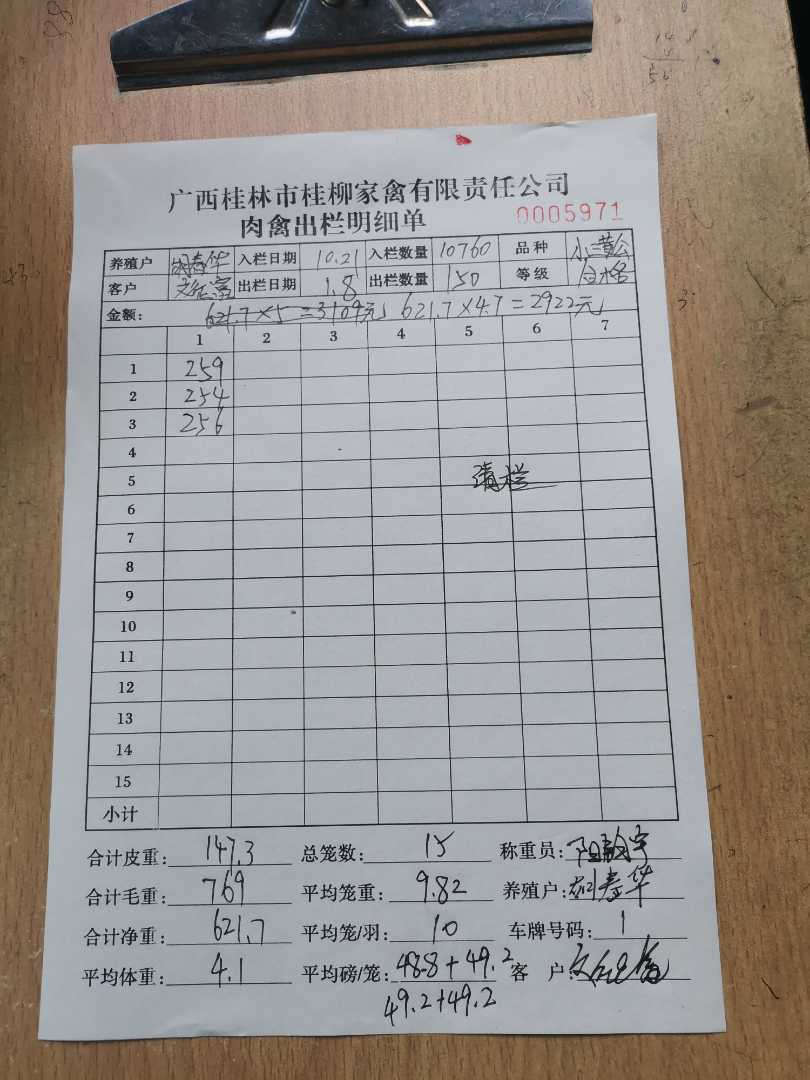 广西桂林市桂柳家禽有限责任公司
肉禽出栏明细单 0005971
养殖户 春华 入栏日期 10.21 入栏数量 10760 品种 小三黄公
客户 出栏日期 1.8 出栏数量 150 等级 合格
金额: 621.7×5=3109元 621.7×4.7=2922元
1 2 3 4 5 6 7
1 259
2 254
3 256
4
5 清栏
6
7
8
9
10
11
12
13
14
15
小计
合计皮重: 147.3 总笼数: 15 称重员:
合计毛重: 769 平均笼重: 9.82 养殖户: 春华
合计净重: 621.7 平均笼/羽: 10 车牌号码: 1
平均体重: 4.1 平均磅/笼: 48.8+49.2 客 户:
49.2+49.2